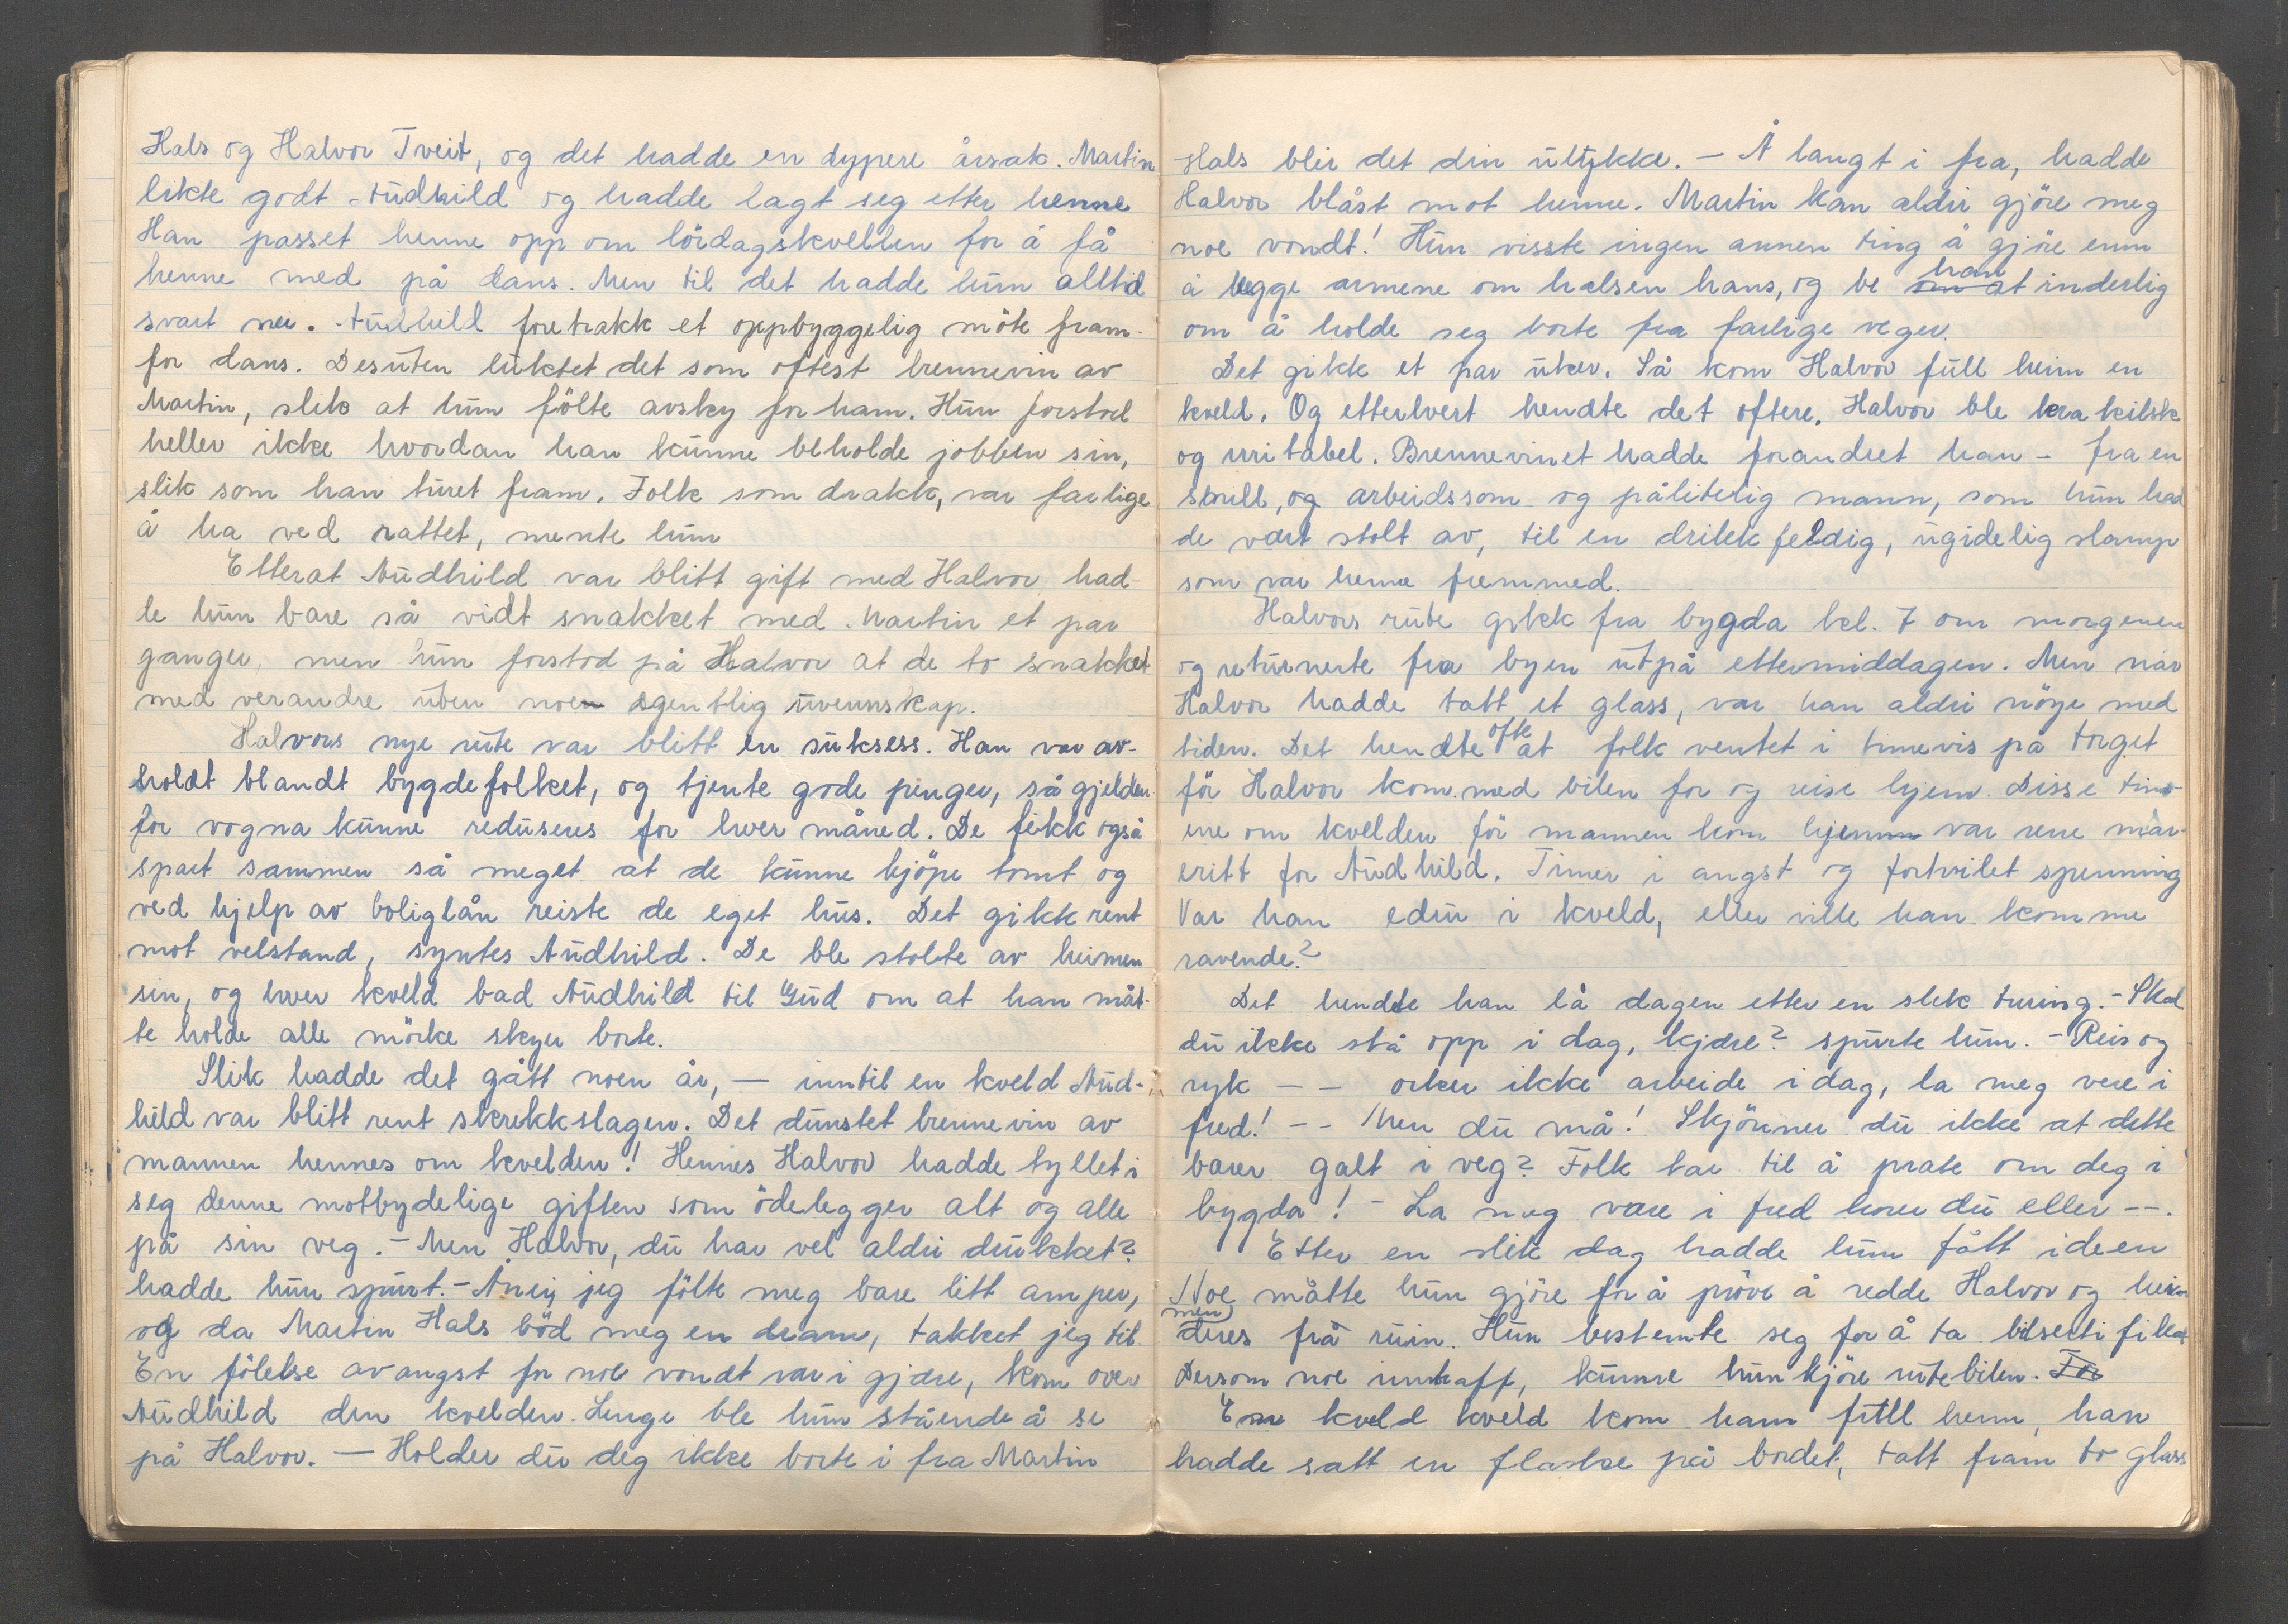 Hals og Halvor Tveit, og det hadde en dypere årsak. Martin
likte godt Audhild og hadde lagt seg etter henne
Han passet henne opp om lördagskvellen for å få
henne med på dans. Men til det hadde hun alltid
svart nei. Audhild foretrakk et oppbyggelig möte fram-
for dans. Desuten luktet det som oftest brennevin av
Martin, slik at hun fölte avsky for ham. Hun forstod
heller ikke hvordan han kunne beholde jobben sin,
slik som han turet fram. Folk som drakk, var farlige
å ha ved rattet, mente hun
Etterat Audhild var blitt gift med Halvor, had-
de hun bare så vidt snakket med Martin et par
ganger, men hun forstod på Halvor at de to snakket
med verandre uten noen egentlig uvennskap.
Halvors nye rute var blitt en suksess. Han var av-
holdt blandt bygdefolket, og tjente gode penger, så gjelden
for vogna kunne reduseres for hver måned. De fikk også
spart sammen så meget at de kunne kjöpe tomt og
ved hjelp av boliglån reiste de eget hus. Det gikk rent
mot velstand, syntes Audhild. De ble stolte av heimen
sin, og hver kveld bad Audhild til Gud om at han måt-
te holde alle mörke skyer borte.
Slik hadde det gått noen år, — inntil en kveld Aud-
hild var blitt rent skrekkslagen. Det dunstet brennevin av
mannen hennes om kvelden! Hennes Halvor hadde tyllet i
seg denne motbydelige giften som ödelegger alt og alle
på sin veg. - Men Halvor, du har vel aldri drukket?
hadde hun spurt. - Ånei, jeg fölte meg bare litt amper,
og da Martin Hals böd meg en dram, takket jeg til.
En fölelse av angst for noe vondt var i gjære, kom over
Audhild den kvelden. Lenge ble hun stående å se
på Halvor. — Holder du deg ikke borte i fra Martin
Hals blir det din ulykke. - Å langt i fra, hadde
Halvor blåst mot henne. Martin kan aldri gjöre meg
noe vondt! Hun visste ingen annen ting å gjöre enn
å legge armene om halsen hans, og be han inderlig
om å holde seg borte fra farlige veger.
Det gikk et par uker. Så kom Halvor full heim en
kveld. Og etterhvert hendte det oftere. Halvor ble krakilsk
og irritabel. Brennevinet hadde forandret han - fra en
snill, og arbeidssom og pålitelig mann, som hun had
de vært stolt av, til en drikkfeldig, ugidelig slamp
som var henne fremmed.
Halvors rute gikk fra bygda kl. 7 om morgenen
og returnerte fra byen utpå ettermiddagen. Men når
Halvor hadde tatt et glass, var han aldri nöye med
tiden. Det hendte ofte at folk ventet i timevis på torget
för Halvor kom med bilen for og reise hjem. Disse tim-
ene om kvelden för mannen kom hjem var rene mar-
eritt for Audhild. Timer i angst og fortvilet spenning
Var han edru i kveld, eller ville han komme
ravende?
Det hendte han lå dagen etter en slik turing. - Skal
du ikke stå opp i dag, kjære? spurte hun. - Reis og
ryk -- orker ikke arbeide i dag, la meg være i
fred! -- Men du må! Skjönner du ikke at dette
barer galt i veg? Folk tar til å prate om deg i
bygda! - La meg være i fred hører du eller --.
Etter en slik dag hadde hun fått ideen
Noe måtte hun gjöre for å pröve å redde Halvor og heim
men
deres frå ruin. Hun bestemte seg for å ta bilsertifikat
Dersom noe inntraff, kunne hun kjöre rutebilen. For
En kveld kveld kom ham full heim, han
hadde satt en flaske på bordet, tatt fram to glass